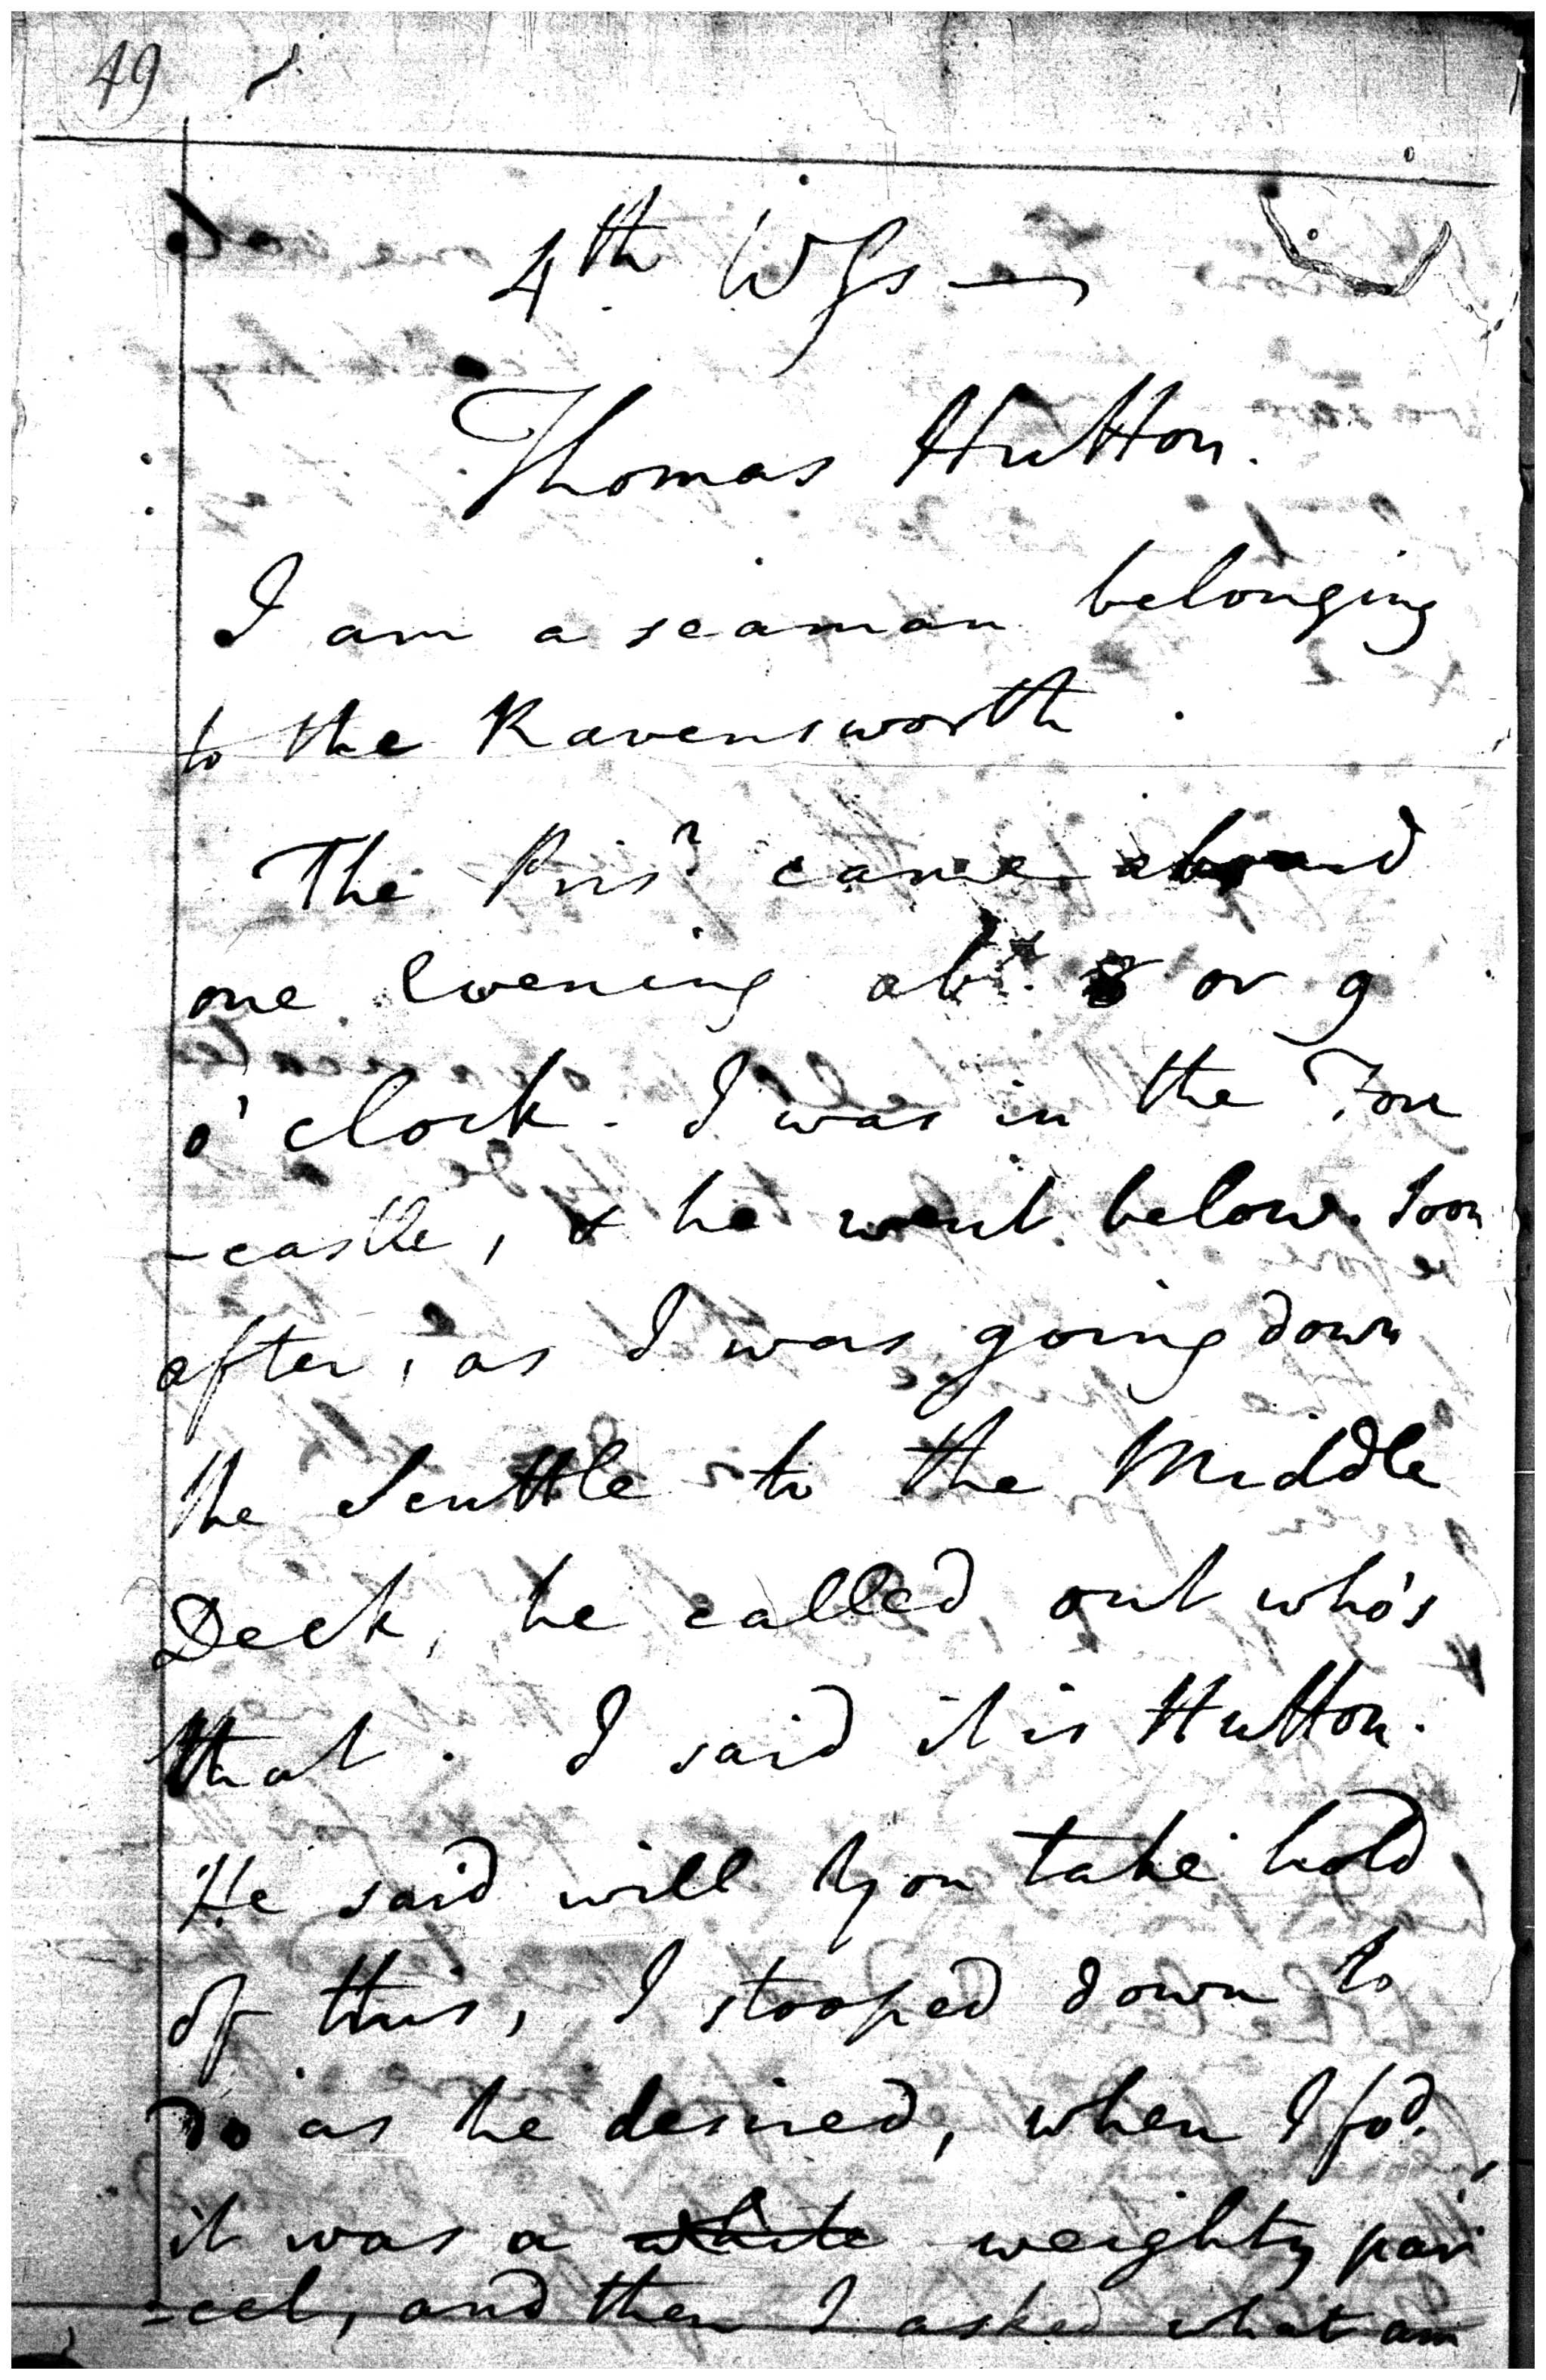 49
4th Wss —
Thomas Hutton.
I am a seaman belonging
to the Ravensworth.
The Prisr came aboard
one Evening abt 8 or 9
o'clock. I was in the Fore
-castle, & he went below. Soon
after, as I was going down
the Scuttle to the Middle
Deck, he called out who's
that. I said it is Hutton.
He said will you take hold
of this, I stooped down to
do as he desired, when I fod.
it was a white weighty par
-cel, and then I asked what am